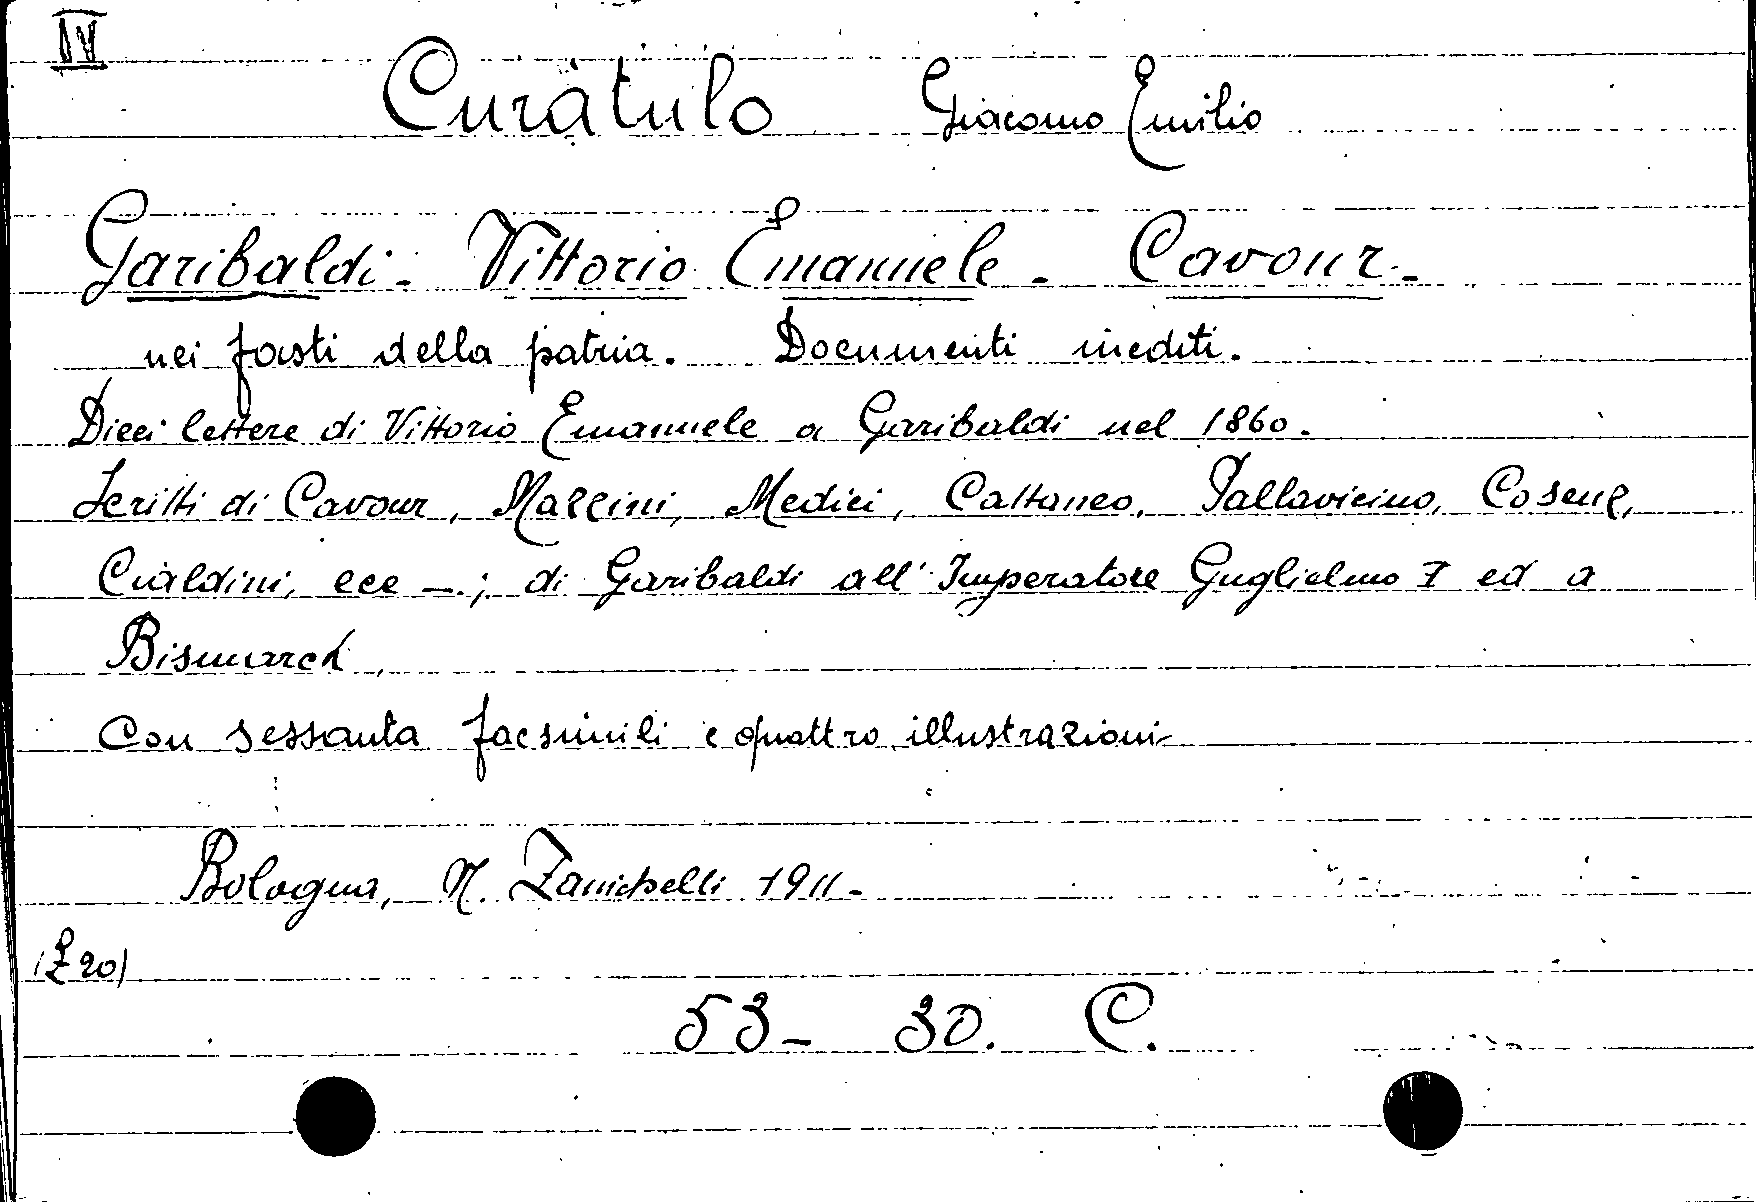 IV
Curàtulo Giacomo Emilio
Garibaldi - Vittorio Emanuele - Cavour -
nei fasti della patria. Documenti inediti.
Dieci lettere di Vittorio Emanuele a Garibaldi nel 1860.
Scritti di Cavour, Mazzini, Medici, Cattaneo, Pallavicino, Cosenz,
Cialdini, ecc -.; di Garibaldi all'Imperatore Guglielmo I ed a
Bismarck
Con sessanta facsimili e quattro illustrazioni
Bologna, N. Zanichelli 1911 -
(£ 20)
53 - 30. C.